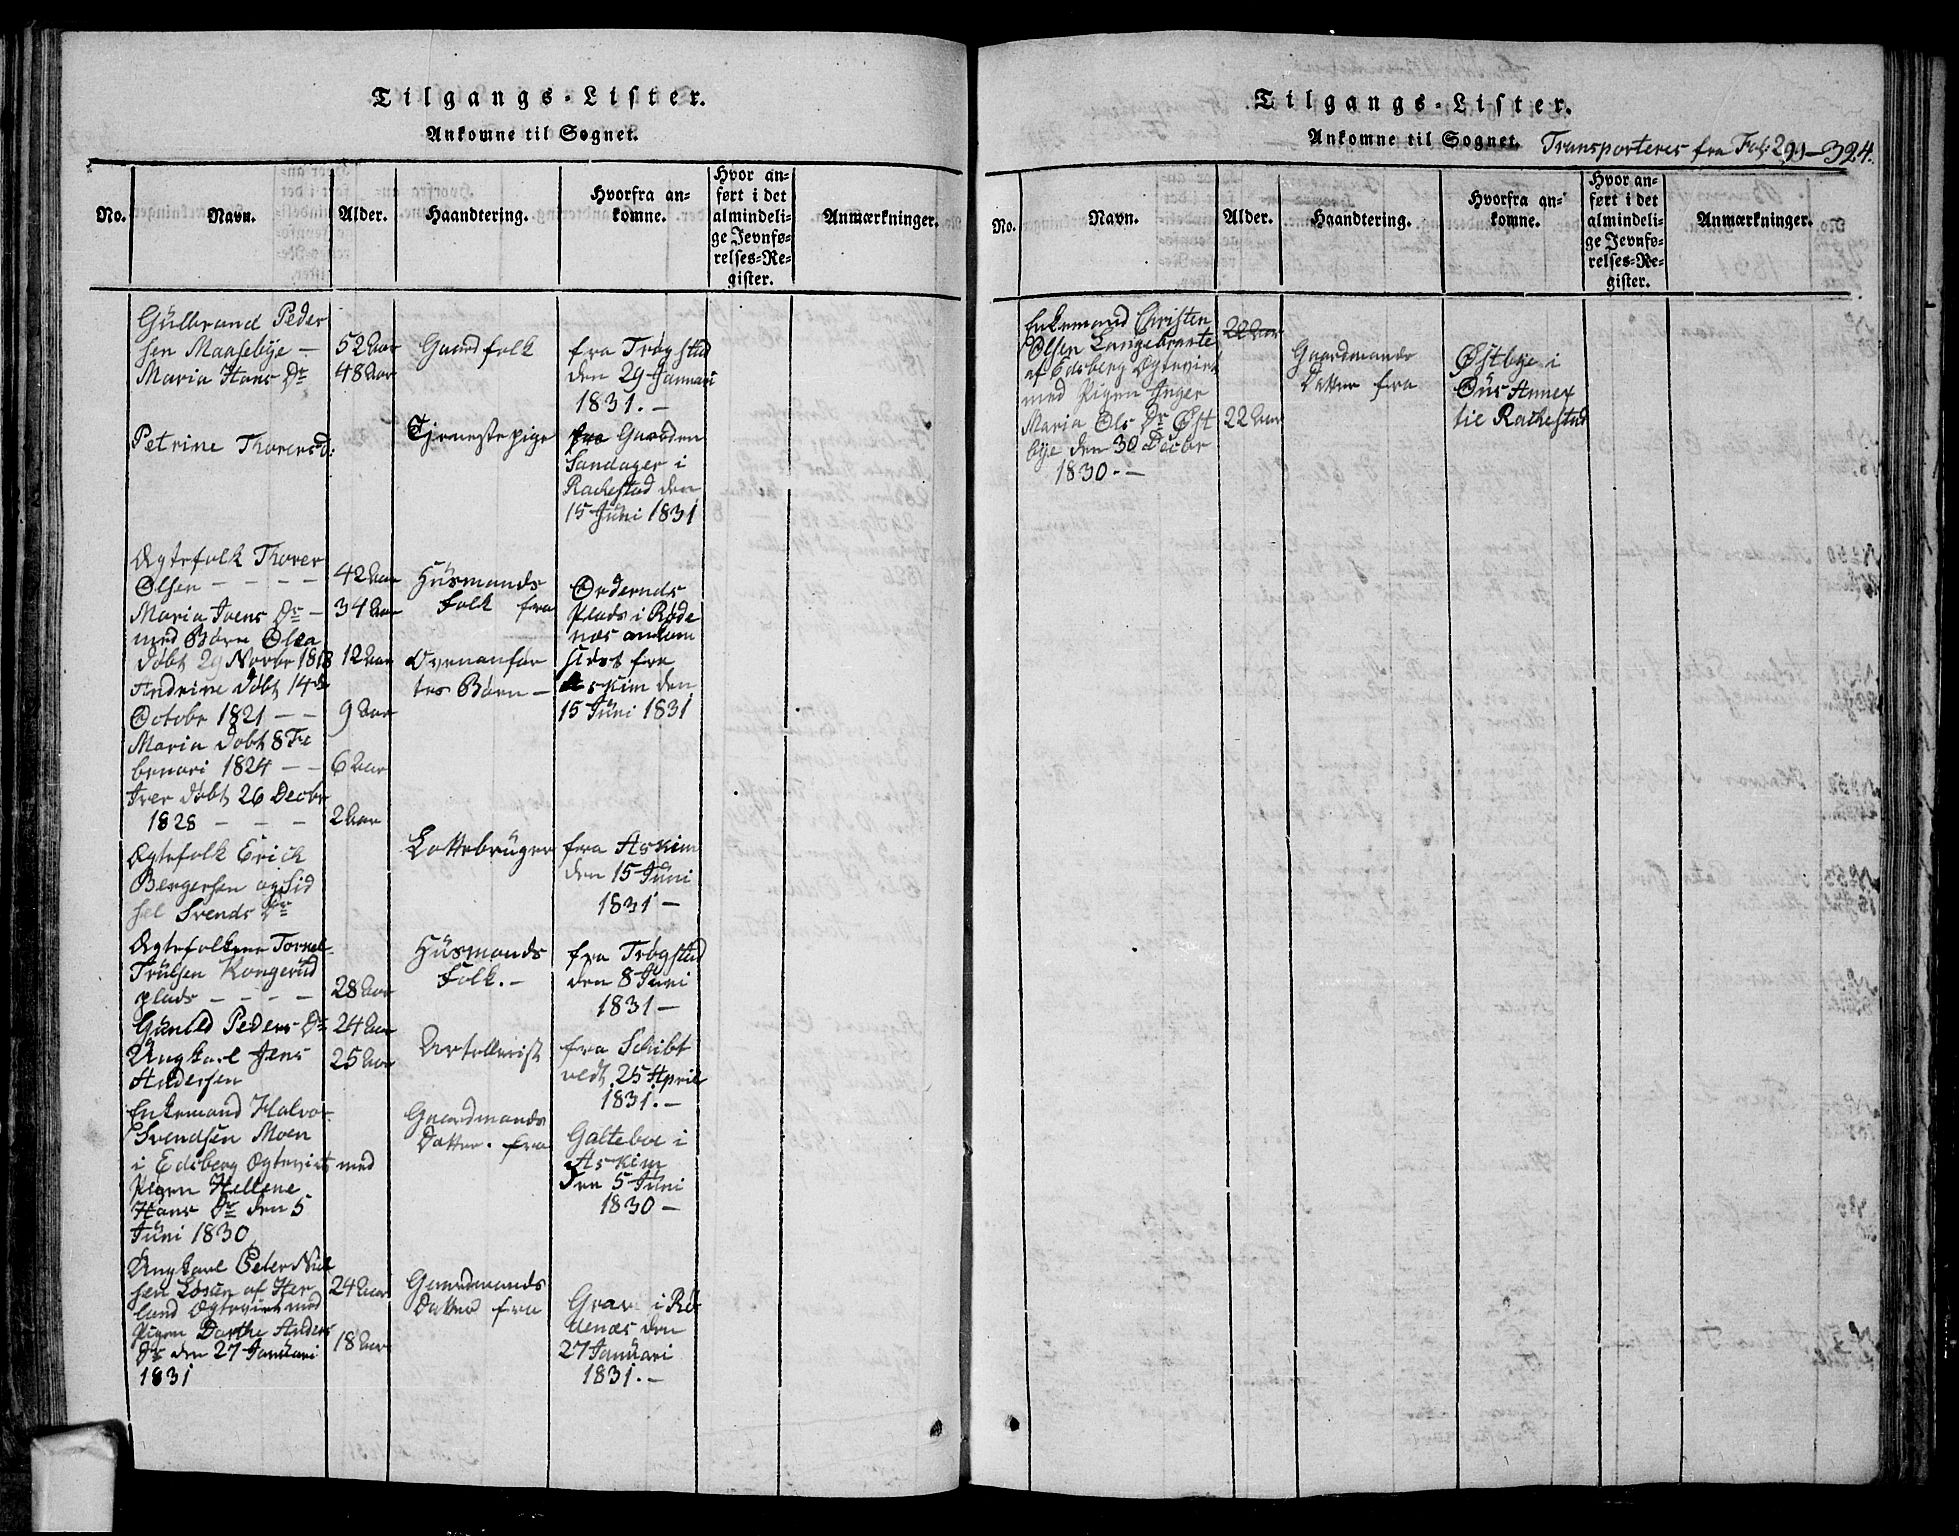 Tilgangs-Lister.
Ankomne til Sognet.
No.
Navn.
Alder.
Haandtering.
Hvorfra an-
komne.
Hvor an-
ført i det
almindeli-
ge Jevnfø-
relses-Re-
gister.
Anmærkninger.
Gülbrand Peder
sen Maasebye —
Maria Hans Dr
52 Aar
48 Aar
Gaardfolk
fra Trøgstad
den 29 Januari
1831. —
Petrine Thorersd:
Tjenestepige
fra Gaarden
Sandager i
Rachestad den
15 Juni 1831
Ægtefolk Thorer
Olsen — — — —
Maria Ivers Dr —
med Børn Olea
døbt 29 Novbr 1818
Andrine døbt 14de
Octobr 1821 — —
Maria døbt 8 Fe
bruari 1824 — —
Iver døbt 26 Decbr
1828 — — —
42 Aar
34 Aar
12 Aar
9 Aar
6 Aar
2 Aar
Hüsmands
Folk fra
Ovenanfør
tes Børn —
Ordernds
Plads i Røde
næs ankom
sidst fra
Askim den
15 Juni 1831
Ægtefolk Erich
Bergersen og Sid
sel Svends Dr
Lottebrüger
fra Askim
den 15 Juni
1831 —
Ægtefolkene Tornel
Trulsen Kongerud
plads — — — —
Günild Peders Dr
28 Aar
24 Aar
Hüsmands
Folk. —
fra Trøgstad
den 8 Juni
1831 —
Ungkarl Jens
Andersen
25 Aar
Artellerist
fra Schibt
vedt 25 April
1831. —
Enkemand Halvor
Svendsen Moen
i Edsberg Ægteviet med
Pigen Hellene
Hans Dr den 5
Juni 1830
Gaardmands
Datter. fra
Galteboe i
Askim
den 5 Juni
1830 —
Ungkarl Peter Niel
sen Løsen af Her
land Ægteviet med
Pigen Dorthe Anders
Dr den 27 Januari
1831
24 Aar
18 Aar
Gaardmands
Datter fra
Grav i Rø
denæs den
27 Januari
1831. —
Tilgangs-Lister.
Ankomne til Sognet. Transporteres fra Fol: 299–324.
No.
Navn.
Alder.
Haandtering.
Hvorfra an-
komne.
Hvor an-
ført i det
almindeli-
ge Jevnfø-
relses-Re-
gister.
Anmærkninger.
Enkemand Christen
Olsen Langebrante
af Edsberg Ægteviet
med Pigen Inger
Maria Ols Dr Øst
bye den 30 Decbr
1830. —
22 Aar
22 Aar
Gaardmands
Datter fra
Østbye i
Øüs Annex
til Rachestad